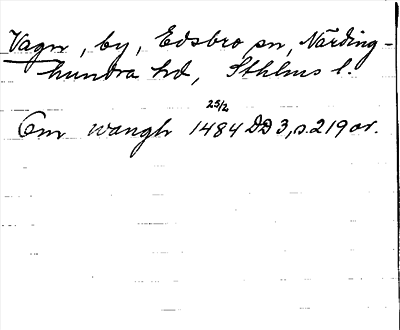 Vagn, by, Edsbro sn, Närding-
hundra hd, Sthlms l.
25/2
Om wangh 1484 DD3, s. 219 or.